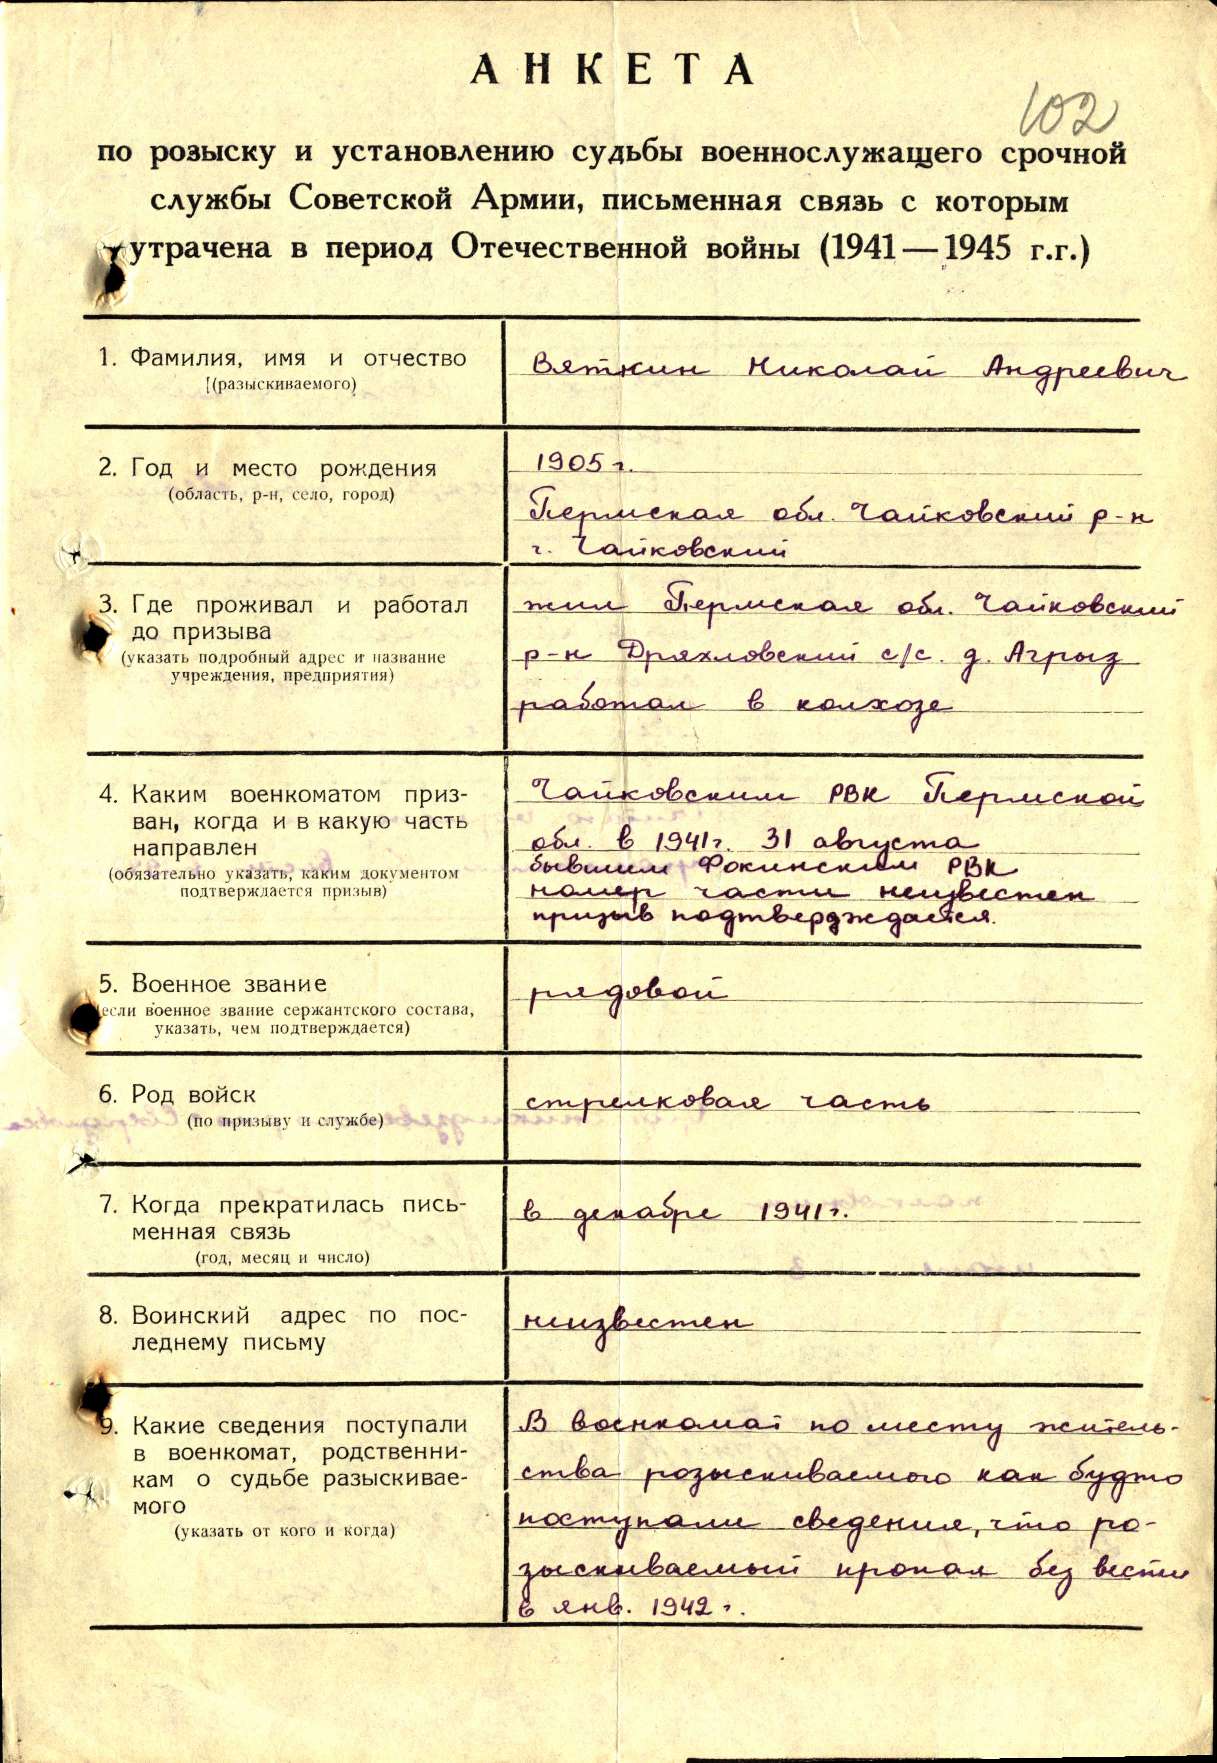 АНКЕТА
102
по розыску и установлению судьбы военнослужащего срочной
службы Советской Армии, письменная связь с которым
утрачена в период Отечественной войны (1941—1945 г.г.)
1. Фамилия, имя и отчество
(разыскиваемого)
Вяткин Николай Андреевич
2. Год и место рождения
(область, р-н, село, город)
1905 г.
Пермская обл. Чайковский р-н
г. Чайковский
3. Где проживал и работал
до призыва
(указать подробный адрес и название
учреждения, предприятия)
жил Пермская обл. Чайковский
р-н Дряхловский с/с. д. Агрыз
работал в колхозе
4. Каким военкоматом приз-
ван, когда и в какую часть
направлен
(обязательно указать, каким документом
подтверждается призыв)
Чайковским РВК Пермской
обл. в 1941 г. 31 августа
бывшим Фокинским РВК
номер части неизвестен
призыв подтверждается.
5. Военное звание
(если военное звание сержантского состава,
указать, чем подтверждается)
рядовой
6. Род войск
(по призыву и службе)
стрелковая часть
7. Когда прекратилась пись-
менная связь
(год, месяц и число)
в декабре 1941 г.
8. Воинский адрес по пос-
леднему письму
неизвестен
9. Какие сведения поступали
в военкомат, родственни-
кам о судьбе разыскивае-
мого
(указать от кого и когда)
В военкомат по месту житель-
ства розыскиваемого как будто
поступали сведения, что ро-
зыскиваемый пропал без вести
в янв. 1942 г.